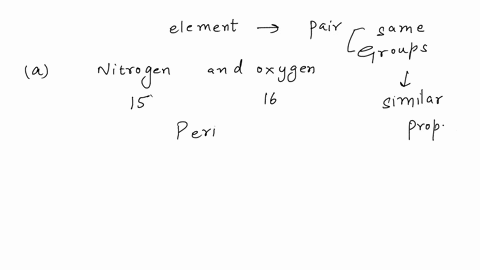 element → pair same
Groups
(a) Nitrogen and oxygen ↓
15 16 similar
Peri prop.